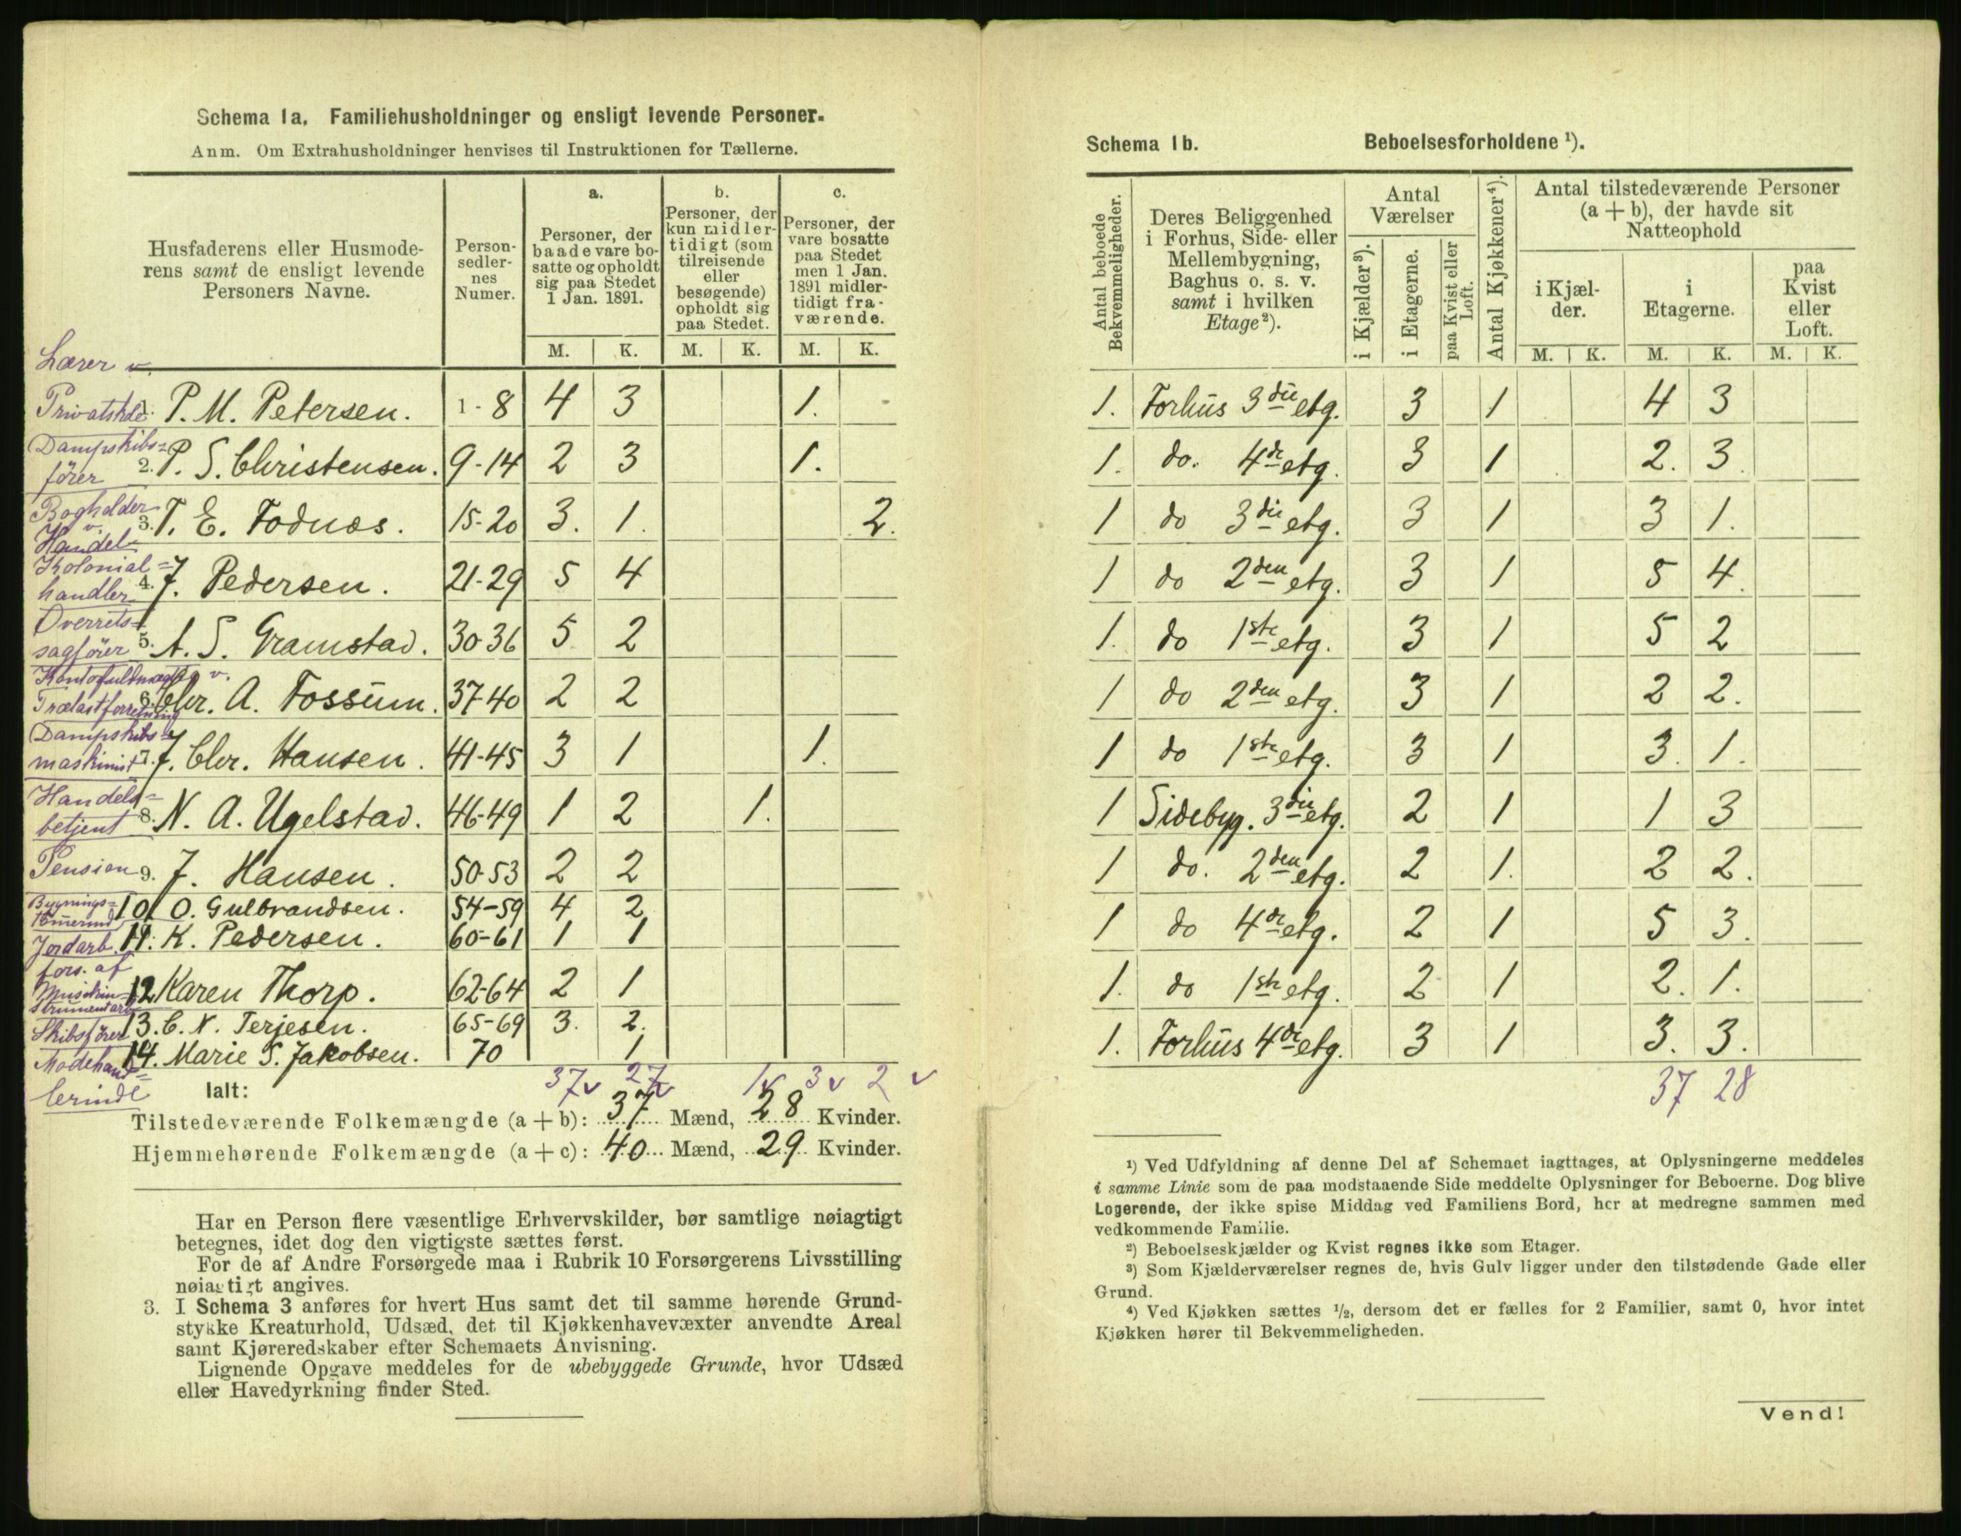 Schema 1a. Familiehusholdninger og ensligt levende Personer.
Anm. Om Extrahusholdninger henvises til Instruktionen for Tællerne.
Husfaderens eller Husmoderens samt de ensligt levende Personers Navne.
Personsedlernes Numer.
a. Personer, der baade vare bosatte og opholdt sig paa Stedet 1 Jan. 1891.
b. Personer, der kun midlertidigt (som tilreisende eller besøgende) opholdt sig paa Stedet.
c. Personer, der vare bosatte paa Stedet men 1 Jan. 1891 midlertidigt fraværende.
M. K. M. K. M. K.
Lærer v. Privatskole 1. P. M. Petersen. 1-8 4 3 1.
Dampskibsfører 2. P. S. Christensen. 9-14 2 3 1.
Bogholder v. Handel 3. T. E. Fodnæs. 15-20 3. 1. 2.
Kolonialhandler 4. J. Pedersen. 21-29 5 4
Overretssagfører 5. A. S. Gramstad. 30-36 5 2
Kontofuldmægtig v. Trælastforretning 6. Chr. A. Fossum. 37-40 2 2
Dampskibsmaskinist 7. J. Chr. Hansen. 41-45 3 1 1.
Handelsbetjent 8. N. A. Ugelstad. 46-49 1 2 1.
Pension 9. J. Hansen. 50-53 2 2
Bygnings= 10. O. Gulbrandsen. 54-59 4 2
Jordarb. 11. K. Pedersen. 60-61 1 1
fors. af 12 Karen Thorp. 62-64 2 1
Skibsfører 13. C. N. Terjesen. 65-69 3. 2.
Modehandlerinde 14. Marie S. Jakobsen. 70 1
Ialt: 37 27 1 3 2
Tilstedeværende Folkemængde (a + b): 37 Mænd, 28 Kvinder.
Hjemmehørende Folkemængde (a + c): 40 Mænd, 29 Kvinder.
Har en Person flere væsentlige Erhvervskilder, bør samtlige nøiagtigt
betegnes, idet dog den vigtigste sættes først.
For de af Andre Forsørgede maa i Rubrik 10 Forsørgerens Livsstilling
nøiagtigt angives.
3. I Schema 3 anføres for hvert Hus samt det til samme hørende Grund-
stykke Kreaturhold, Udsæd, det til Kjøkkenhavevæxter anvendte Areal
samt Kjøreredskaber efter Schemaets Anvisning.
Lignende Opgave meddeles for de ubebyggede Grunde, hvor Udsæd
eller Havedyrkning finder Sted.
Schema 1b. Beboelsesforholdene ¹).
Antal beboede Bekvemmeligheder.
Deres Beliggenhed i Forhus, Side- eller Mellembygning, Baghus o. s. v. samt i hvilken Etage²).
Antal Værelser
i Kjælder³).
i Etagerne.
paa Kvist eller Loft.
Antal Kjøkkener⁴).
Antal tilstedeværende Personer (a + b), der havde sit Natteophold
i Kjælder.
i Etagerne.
paa Kvist eller Loft.
M. K. M. K. M. K.
1. Forhus 3die etg. 3 1 4 3
1. do. 4de etg. 3 1 2. 3.
1 do 3die etg. 3 1 3 1.
1 do 2den etg. 3 1 5 4.
1. do 1ste etg. 3 1 5 2
1 do 2den etg. 3 1 2 2.
1 do 1ste etg. 3 1 3. 1.
1 Sidebyg. 3die etg. 2 1 1 3
1 do. 2den etg. 2 1. 2 2.
1 do 4de etg. 2 1 5 3.
1. do 1ste etg. 2 1 2. 1.
1. Forhus 4de etg. 3 1 3. 3.
37 28
¹) Ved Udfyldning af denne Del af Schemaet iagttages, at Oplysningerne meddeles
i samme Linie som de paa modstaaende Side meddelte Oplysninger for Beboerne. Dog blive
Logerende, der ikke spise Middag ved Familiens Bord, her at medregne sammen med
vedkommende Familie.
²) Beboelseskjælder og Kvist regnes ikke som Etager.
³) Som Kjælderværelser regnes de, hvis Gulv ligger under den tilstødende Gade eller
Grund.
⁴) Ved Kjøkken sættes ½, dersom det er fælles for 2 Familier, samt 0, hvor intet
Kjøkken hører til Bekvemmeligheden.
Vend!